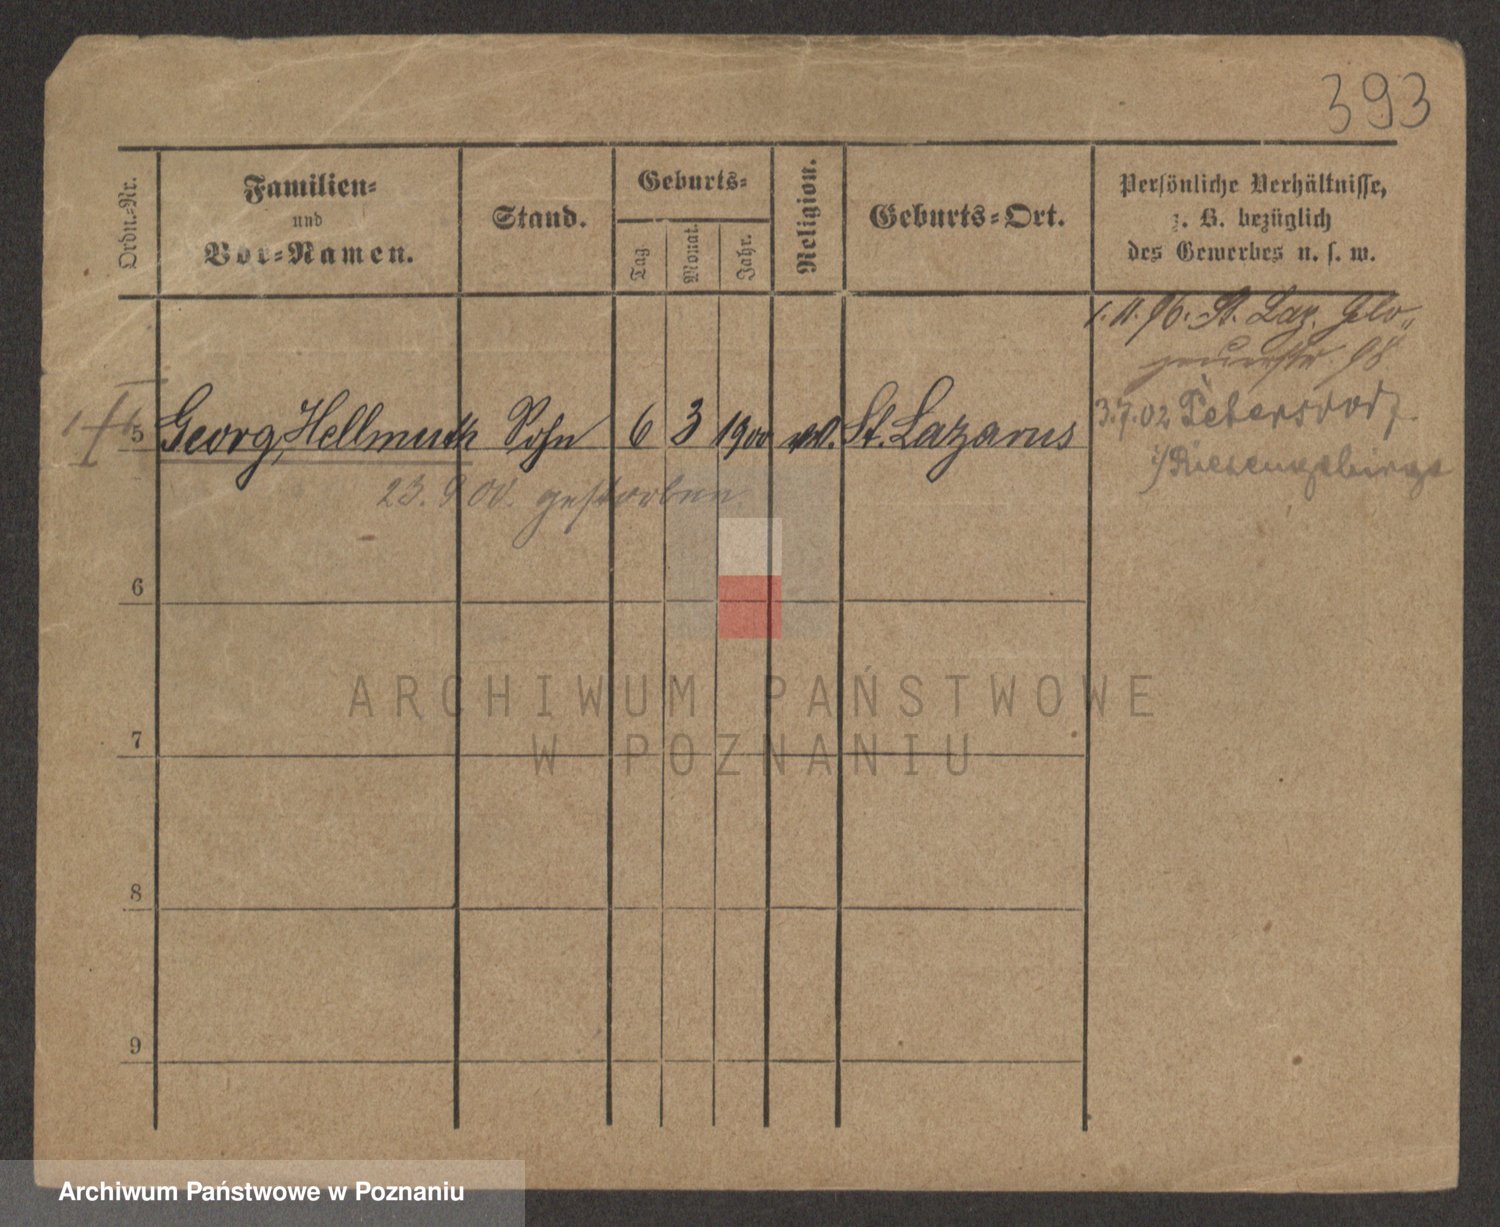 393
Ordn.-Nr.
Familien-
und
Vor-Namen.
Stand.
Geburts-
Tag
Monat.
Jahr.
Religion.
Geburts-Ort.
Persönliche Verhältnisse,
z. B. bezüglich
des Gewerbes u. s. w.
1. 11. 96. St. Laz. Glo-
gauerstr. 98
5 Georg, Hellmuth Sohn 6 3 1900 ev. St. Lazarus
3.7.02 Petersdorf
i/Riesengebirge
23. 9 00. gestorben
6
7
8
9
ARCHIWUM PAŃSTWOWE
W POZNANIU
Archiwum Państwowe w Poznaniu